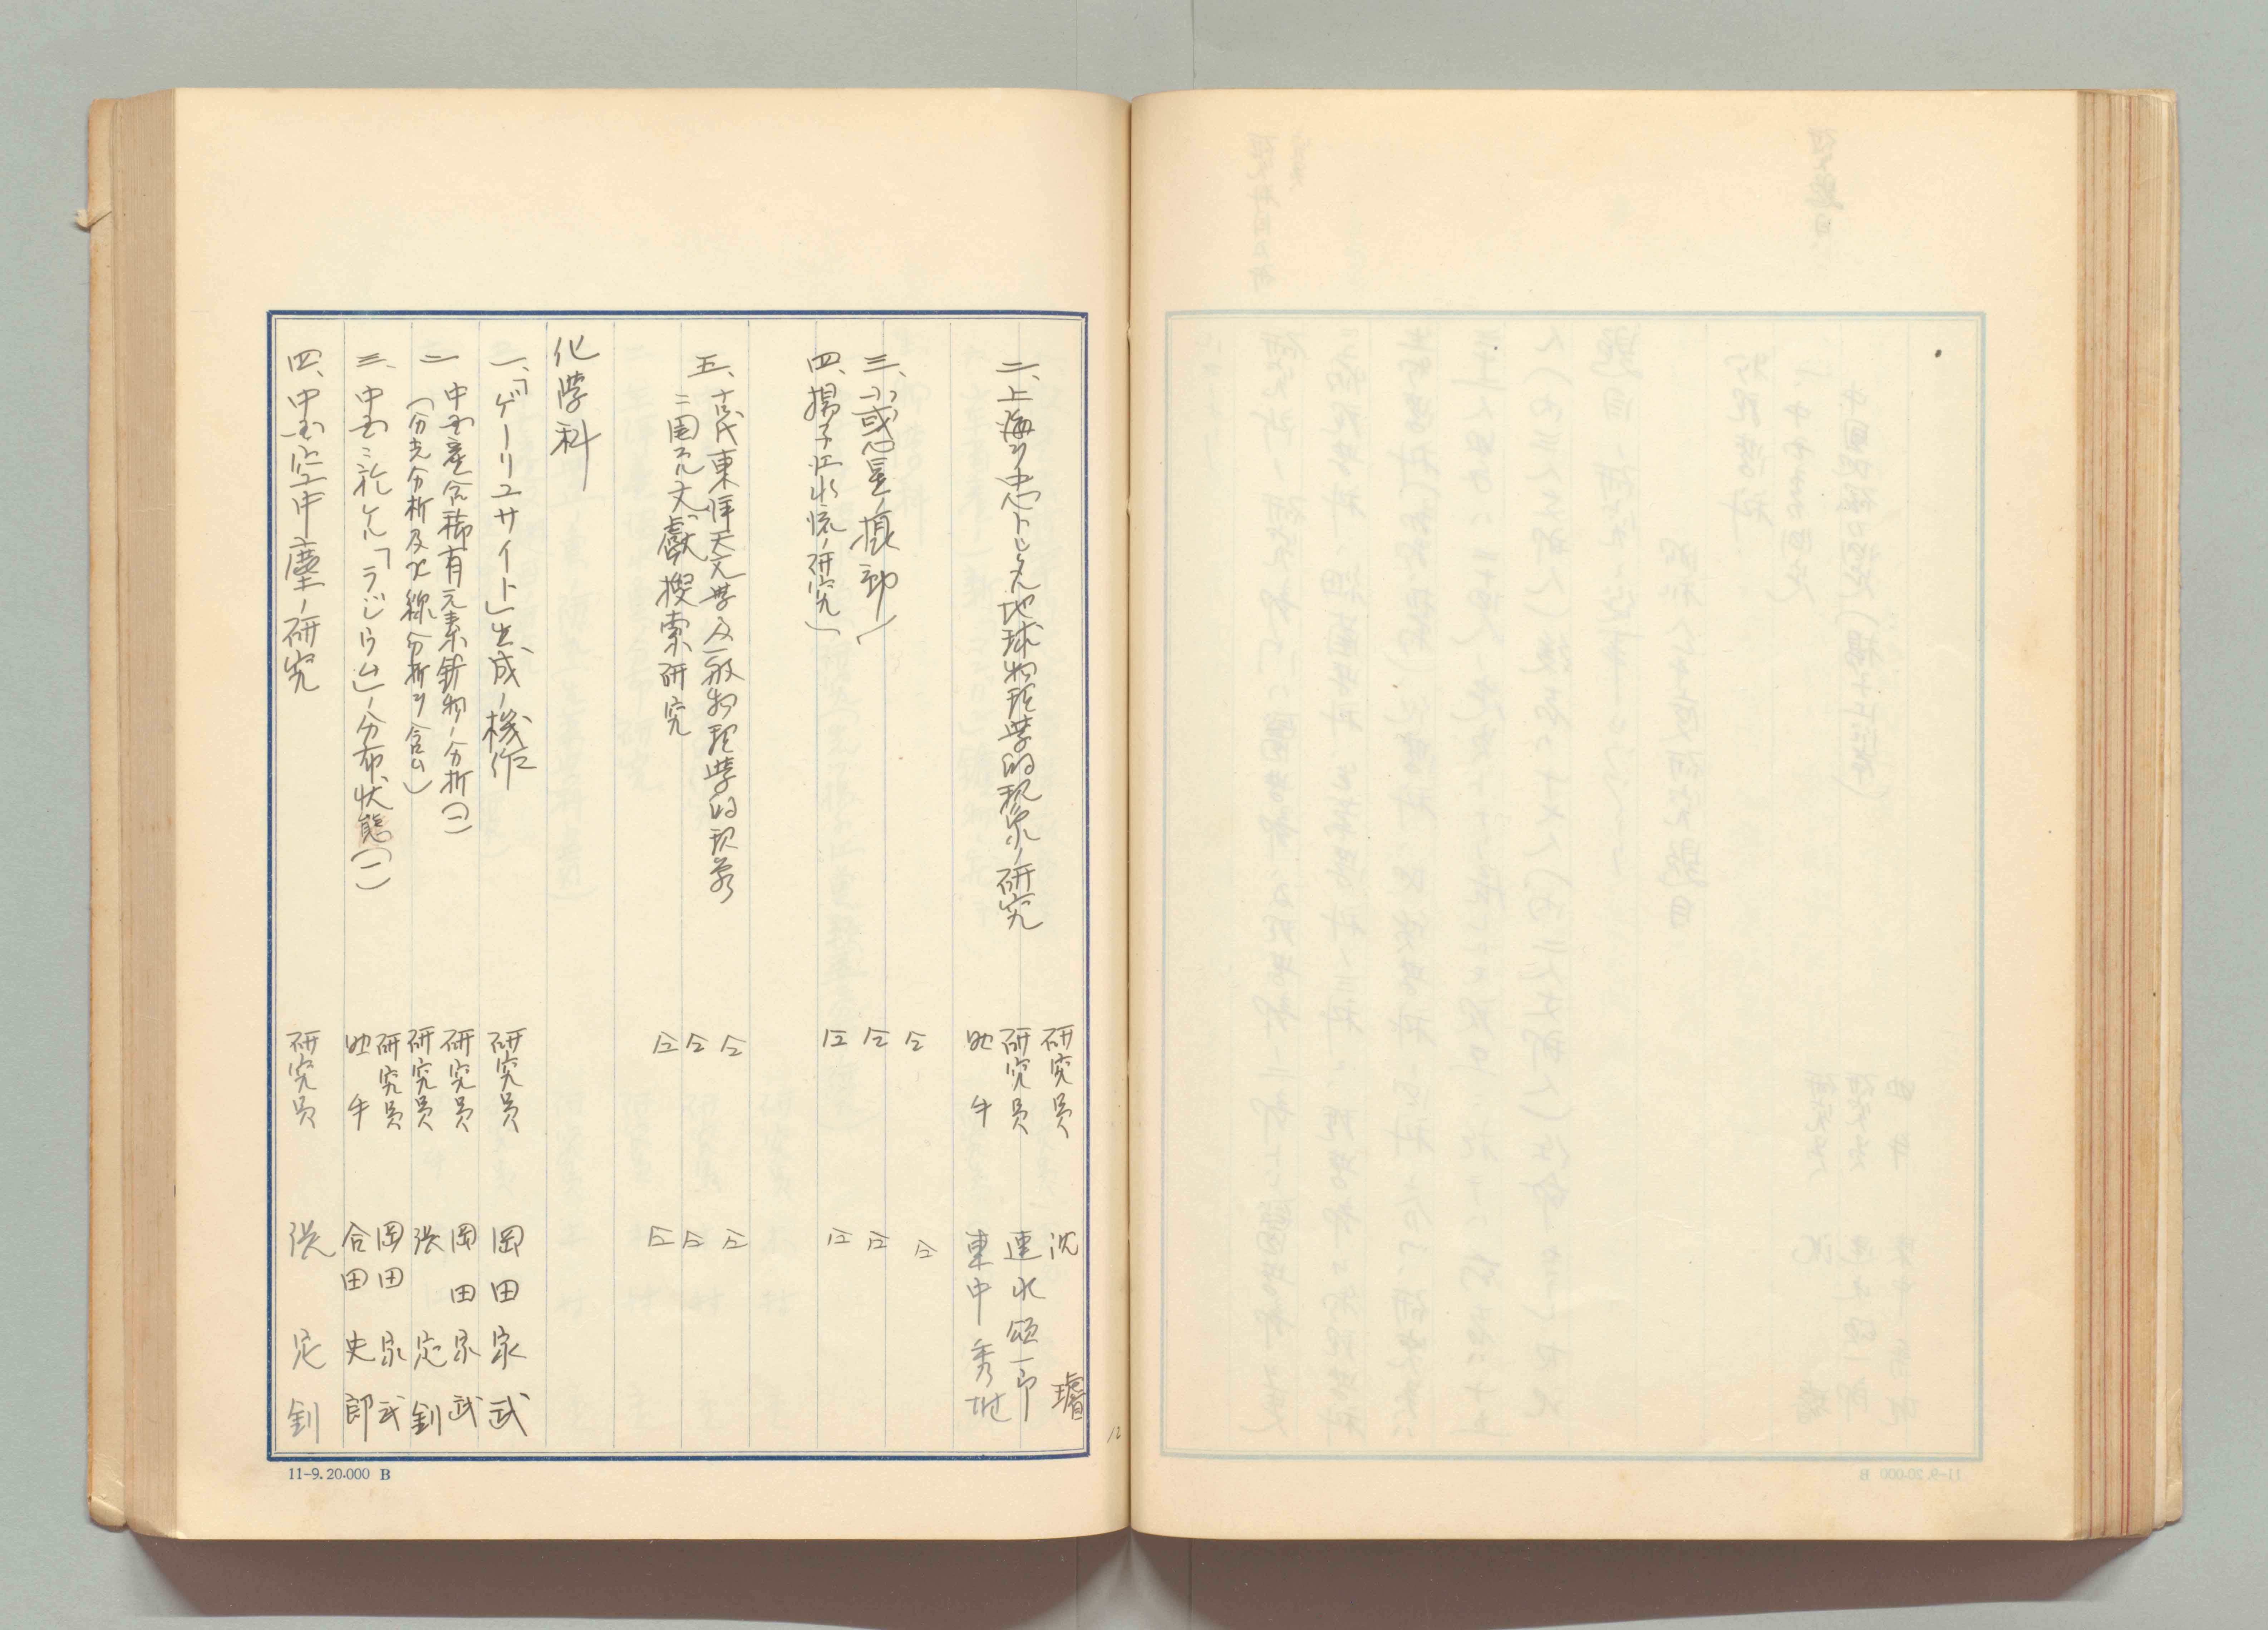 二、上海ヲ中心トシタル地球物理学的現象ノ研究
研究員 沈 璿
研究員 速水頌一郎
助手 東中秀雄
三、小惑星ノ摂動
仝 仝
仝 仝
四、揚子江水流ノ研究
仝 仝
五、古代東洋天文学及一般物理学的現象
ニ関スル文献捜索研究
仝 仝
仝 仝
仝 仝
化学科
一、「ゲーリユサイト」生成ノ機作
研究員 岡田家武
二 中国産含稀有元素鉱物ノ分析(一)
(分光分析及X線分析ヲ含ム)
研究員 岡田家武
研究員 張定釗
三、中国ニ於ケル「ラジウム」ノ分布状態(一)
研究員 岡田家武
助手 合田史郎
四、中国空中塵ノ研究
研究員 張定釗
12
11-9. 20.000 B